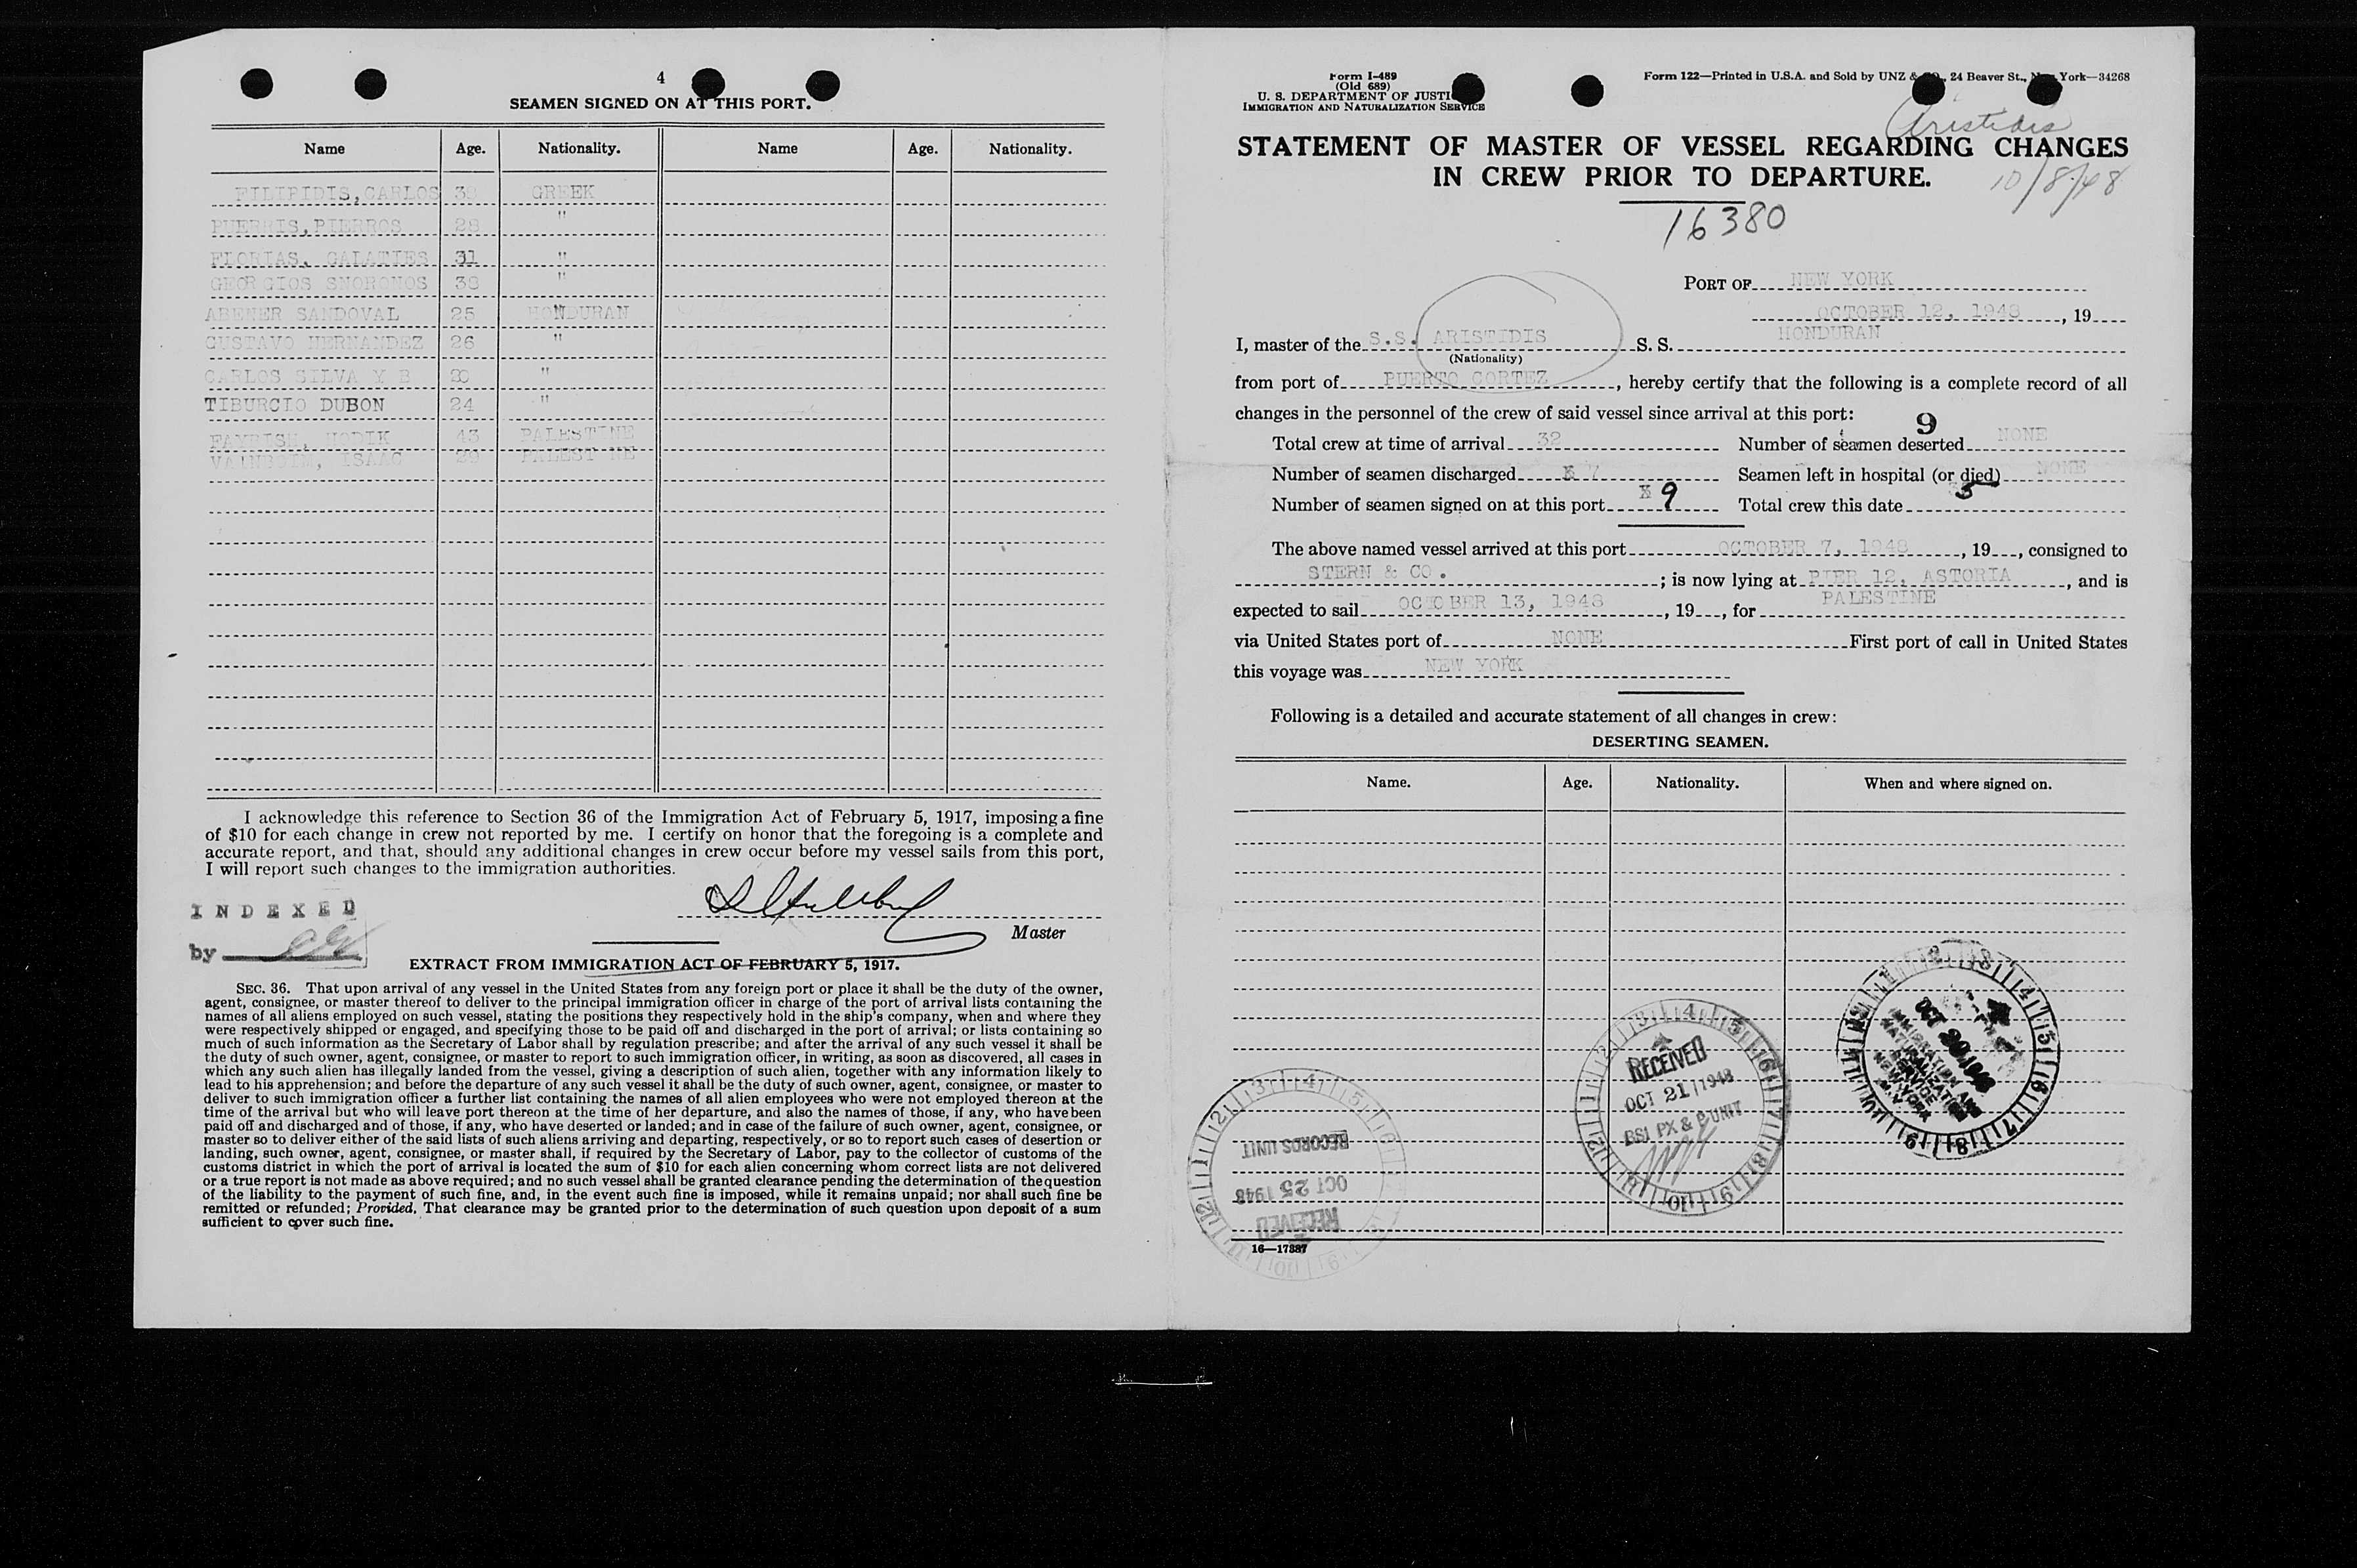 4
SEAMEN SIGNED ON AT THIS PORT.
Name Age. Nationality. Name Age. Nationality.
FILIPIDIS, CARLOS GREEK
PIERROS 28 "
FLORIAS, GALATIES 31 "
GEORGIOS 38 "
ABENER SANDOVAL 25 HONDURAN
GUSTAVO HERNANDEZ 26 "
CARLOS SILVA Y B "
TIBURCIO DUBON 24 "
43 PALESTINE
ISAAC 29 PALESTINE
I acknowledge this reference to Section 36 of the Immigration Act of February 5, 1917, imposing a fine
of $10 for each change in crew not reported by me. I certify on honor that the foregoing is a complete and
accurate report, and that, should any additional changes in crew occur before my vessel sails from this port,
I will report such changes to the immigration authorities.
INDEXED
by
Master
EXTRACT FROM IMMIGRATION ACT OF FEBRUARY 5, 1917.
SEC. 36. That upon arrival of any vessel in the United States from any foreign port or place it shall be the duty of the owner,
agent, consignee, or master thereof to deliver to the principal immigration officer in charge of the port of arrival lists containing the
names of all aliens employed on such vessel, stating the positions they respectively hold in the ship's company, when and where they
were respectively shipped or engaged, and specifying those to be paid off and discharged in the port of arrival; or lists containing so
much of such information as the Secretary of Labor shall by regulation prescribe; and after the arrival of any such vessel it shall be
the duty of such owner, agent, consignee, or master to report to such immigration officer, in writing, as soon as discovered, all cases in
which any such alien has illegally landed from the vessel, giving a description of such alien, together with any information likely to
lead to his apprehension; and before the departure of any such vessel it shall be the duty of such owner, agent, consignee, or master to
deliver to such immigration officer a further list containing the names of all alien employees who were not employed thereon at the
time of the arrival but who will leave port thereon at the time of her departure, and also the names of those, if any, who have been
paid off and discharged and of those, if any, who have deserted or landed; and in case of the failure of such owner, agent, consignee, or
master so to deliver either of the said lists of such aliens arriving and departing, respectively, or so to report such cases of desertion or
landing, such owner, agent, consignee, or master shall, if required by the Secretary of Labor, pay to the collector of customs of the
customs district in which the port of arrival is located the sum of $10 for each alien concerning whom correct lists are not delivered
or a true report is not made as above required; and no such vessel shall be granted clearance pending the determination of the question
of the liability to the payment of such fine, and, in the event such fine is imposed, while it remains unpaid; nor shall such fine be
remitted or refunded; Provided, That clearance may be granted prior to the determination of such question upon deposit of a sum
sufficient to cover such fine.
Form I-489
(Old 689)
U. S. DEPARTMENT OF JUSTI
IMMIGRATION AND NATURALIZATION SERVICE
Form 122—Printed in U.S.A. and Sold by UNZ & , 24 Beaver St., York—34268
Aristidis
STATEMENT OF MASTER OF VESSEL REGARDING CHANGES
IN CREW PRIOR TO DEPARTURE.
10/8/48
16380
PORT OF NEW YORK
OCTOBER 12, 1948, 19
I, master of the S.S. ARISTIDIS S. S. HONDURAN
(Nationality)
from port of PUERTO CORTEZ, hereby certify that the following is a complete record of all
changes in the personnel of the crew of said vessel since arrival at this port:
9
Total crew at time of arrival 32 Number of seamen deserted NONE
Number of seamen discharged 7 Seamen left in hospital (or died) NONE
Number of seamen signed on at this port 9 Total crew this date
The above named vessel arrived at this port OCTOBER 7, 1948, 19, consigned to
STERN & CO. ; is now lying at PIER 12, ASTORIA, and is
expected to sail OCTOBER 13, 1948, 19, for PALESTINE
via United States port of NONE First port of call in United States
this voyage was NEW YORK
Following is a detailed and accurate statement of all changes in crew:
DESERTING SEAMEN.
Name. Age. Nationality. When and where signed on.
RECEIVED
OCT 21 1948
BSI PX & P UNIT
OCT 20 1948
IMMIGRATION AND
NATURALIZATION
SERVICE
NEW YORK
N.Y.
RECORDS UNIT
OCT 25 1948
RECEIVED
16—17387